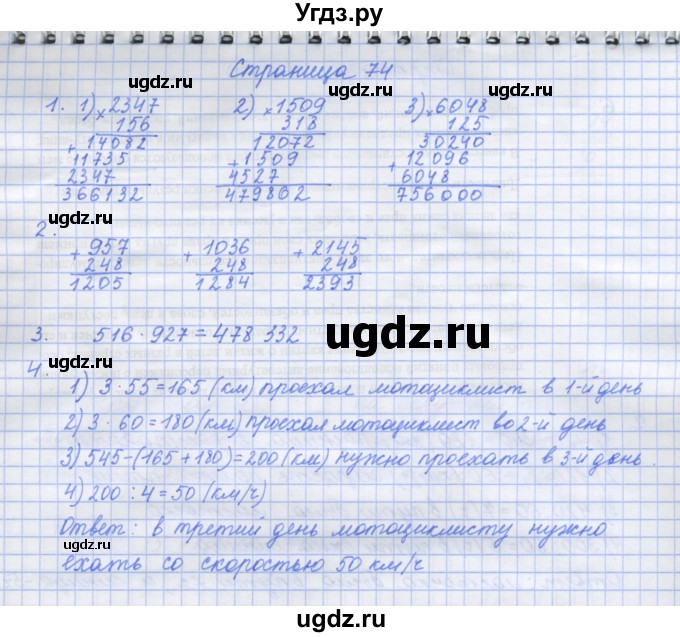 Угдз.ру
Страница 74
ugdz.ru
ugdz.ru
ugdz.ru
1. 1) × 2347 2) × 1509 3) × 6048
156 318 125
+ 14082 12072 30240
11735 + 1509 + 12096
2347 4527 6048
366132 479802 756000
ugdz.ru
2.
+ 957 + 1036 + 2145
248 248 248
1205 1284 2393
3. 516 · 927 = 478 332
ugdz.ru
4.
1) 3 · 55 = 165 (км) проехал мотоциклист в 1-й день
2) 3 · 60 = 180 (км) проехал мотоциклист во 2-й день
3) 545 - (165 + 180) = 200 (км) нужно проехать в 3-й день.
4) 200 : 4 = 50 (км/ч)
ugdz.ru
Ответ: в третий день мотоциклисту нужно
ugdz.ru
ехать со скоростью 50 км/ч
ugdz.ru
ugdz.ru
ugdz.ru